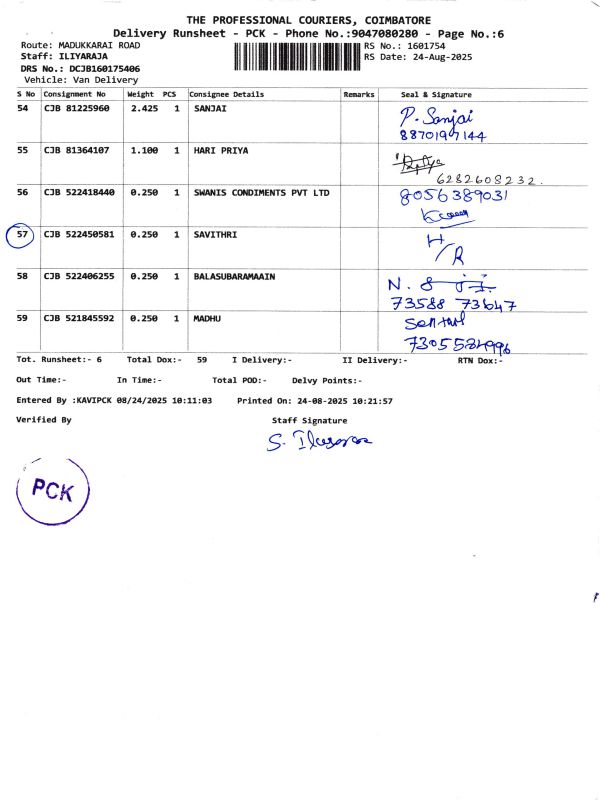 THE PROFESSIONAL COURIERS, COIMBATORE
Delivery Runsheet - PCK - Phone No.:9047080280 - Page No.:6
Route: MADUKKARAI ROAD RS No.: 1601754
Staff: ILIYARAJA RS Date: 24-Aug-2025
DRS No.: DCJB160175406
Vehicle: Van Delivery
S No Consignment No Weight PCS Consignee Details Remarks Seal & Signature
54 CJB 81225960 2.425 1 SANJAI P. Sanjai
8870197144
55 CJB 81364107 1.100 1 HARI PRIYA
6282608232.
56 CJB 522418440 0.250 1 SWANIS CONDIMENTS PVT LTD 8056389031
57 CJB 522450581 0.250 1 SAVITHRI H/R
58 CJB 522406255 0.250 1 BALASUBARAMAAIN N.
73588 73647
59 CJB 521845592 0.250 1 MADHU
7305584996
Tot. Runsheet:- 6 Total Dox:- 59 I Delivery:- II Delivery:- RTN Dox:-
Out Time:- In Time:- Total POD:- Delvy Points:-
Entered By :KAVIPCK 08/24/2025 10:11:03 Printed On: 24-08-2025 10:21:57
Verified By Staff Signature
S.
PCK